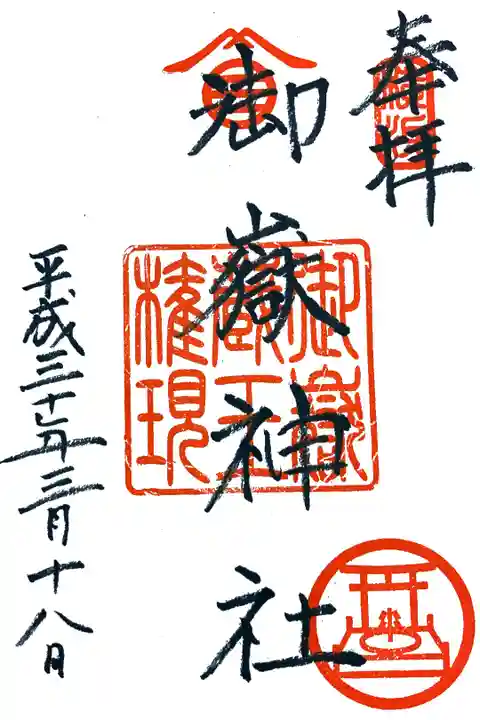 奉拝
御嶽神社
御嶽蔵王権現
平成三十年三月十八日